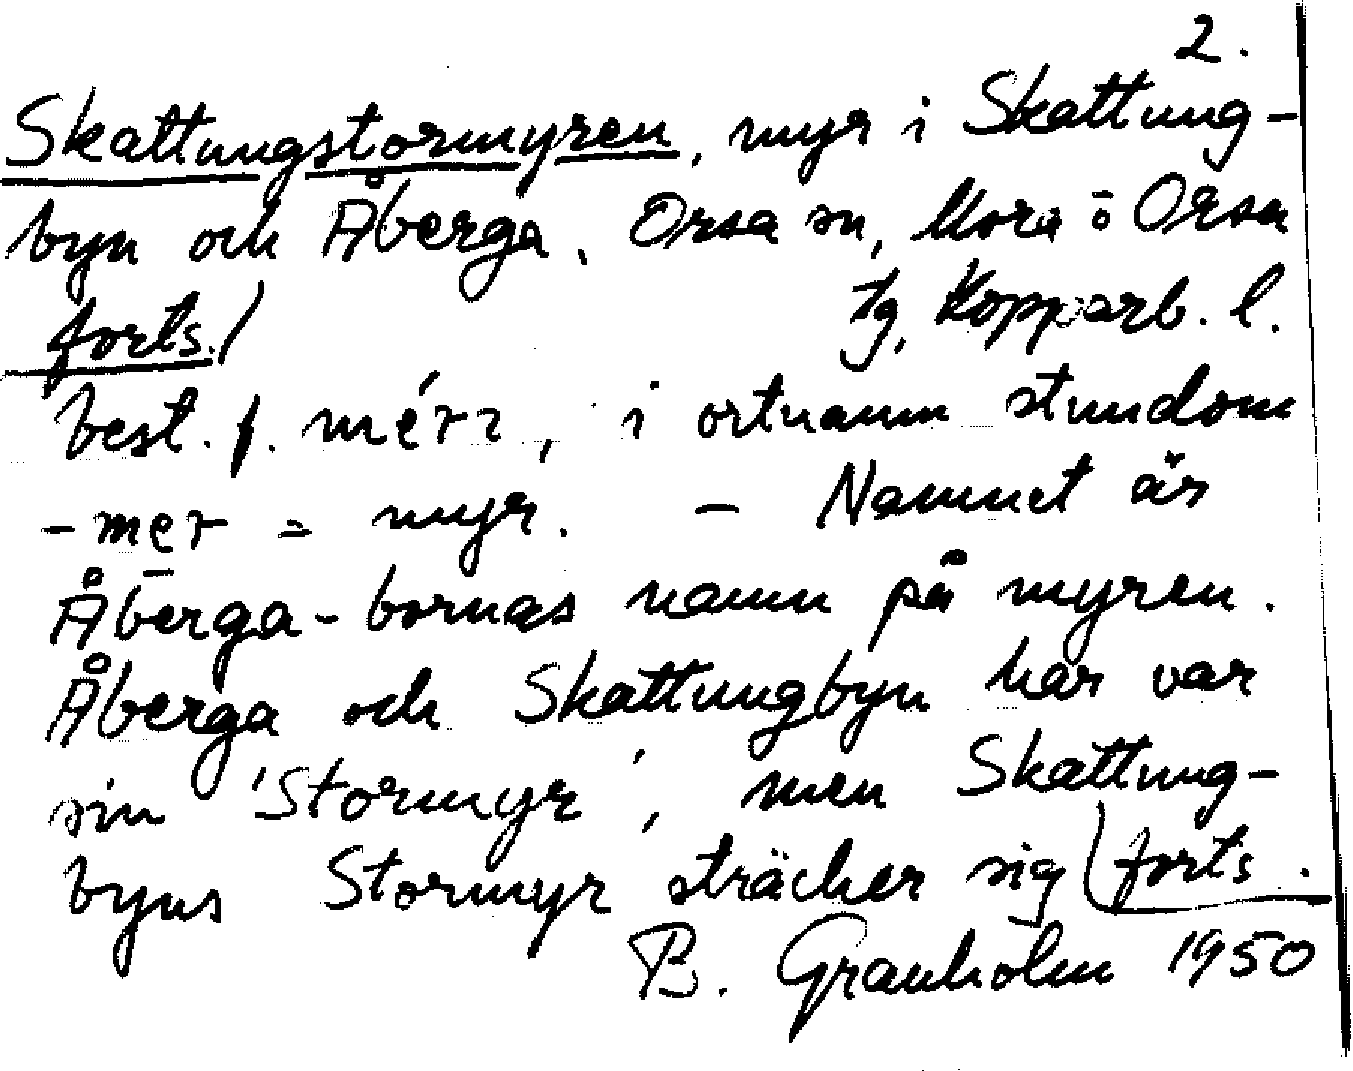 2.
Skattungstormyren, myr i Skattung-
byn och Åberga, Orsa sn, Mora o Orsa
forts./ tg, Kopparb. l.
best. f. mérr, i ortnamn stundom
-mer = myr. – Namnet är
Åberga-bornas namn på myren.
Åberga och Skattungbyn har var
sin 'Stormyr', men Skattung-
byns Stormyr sträcker sig forts.
B. Granholm 1950